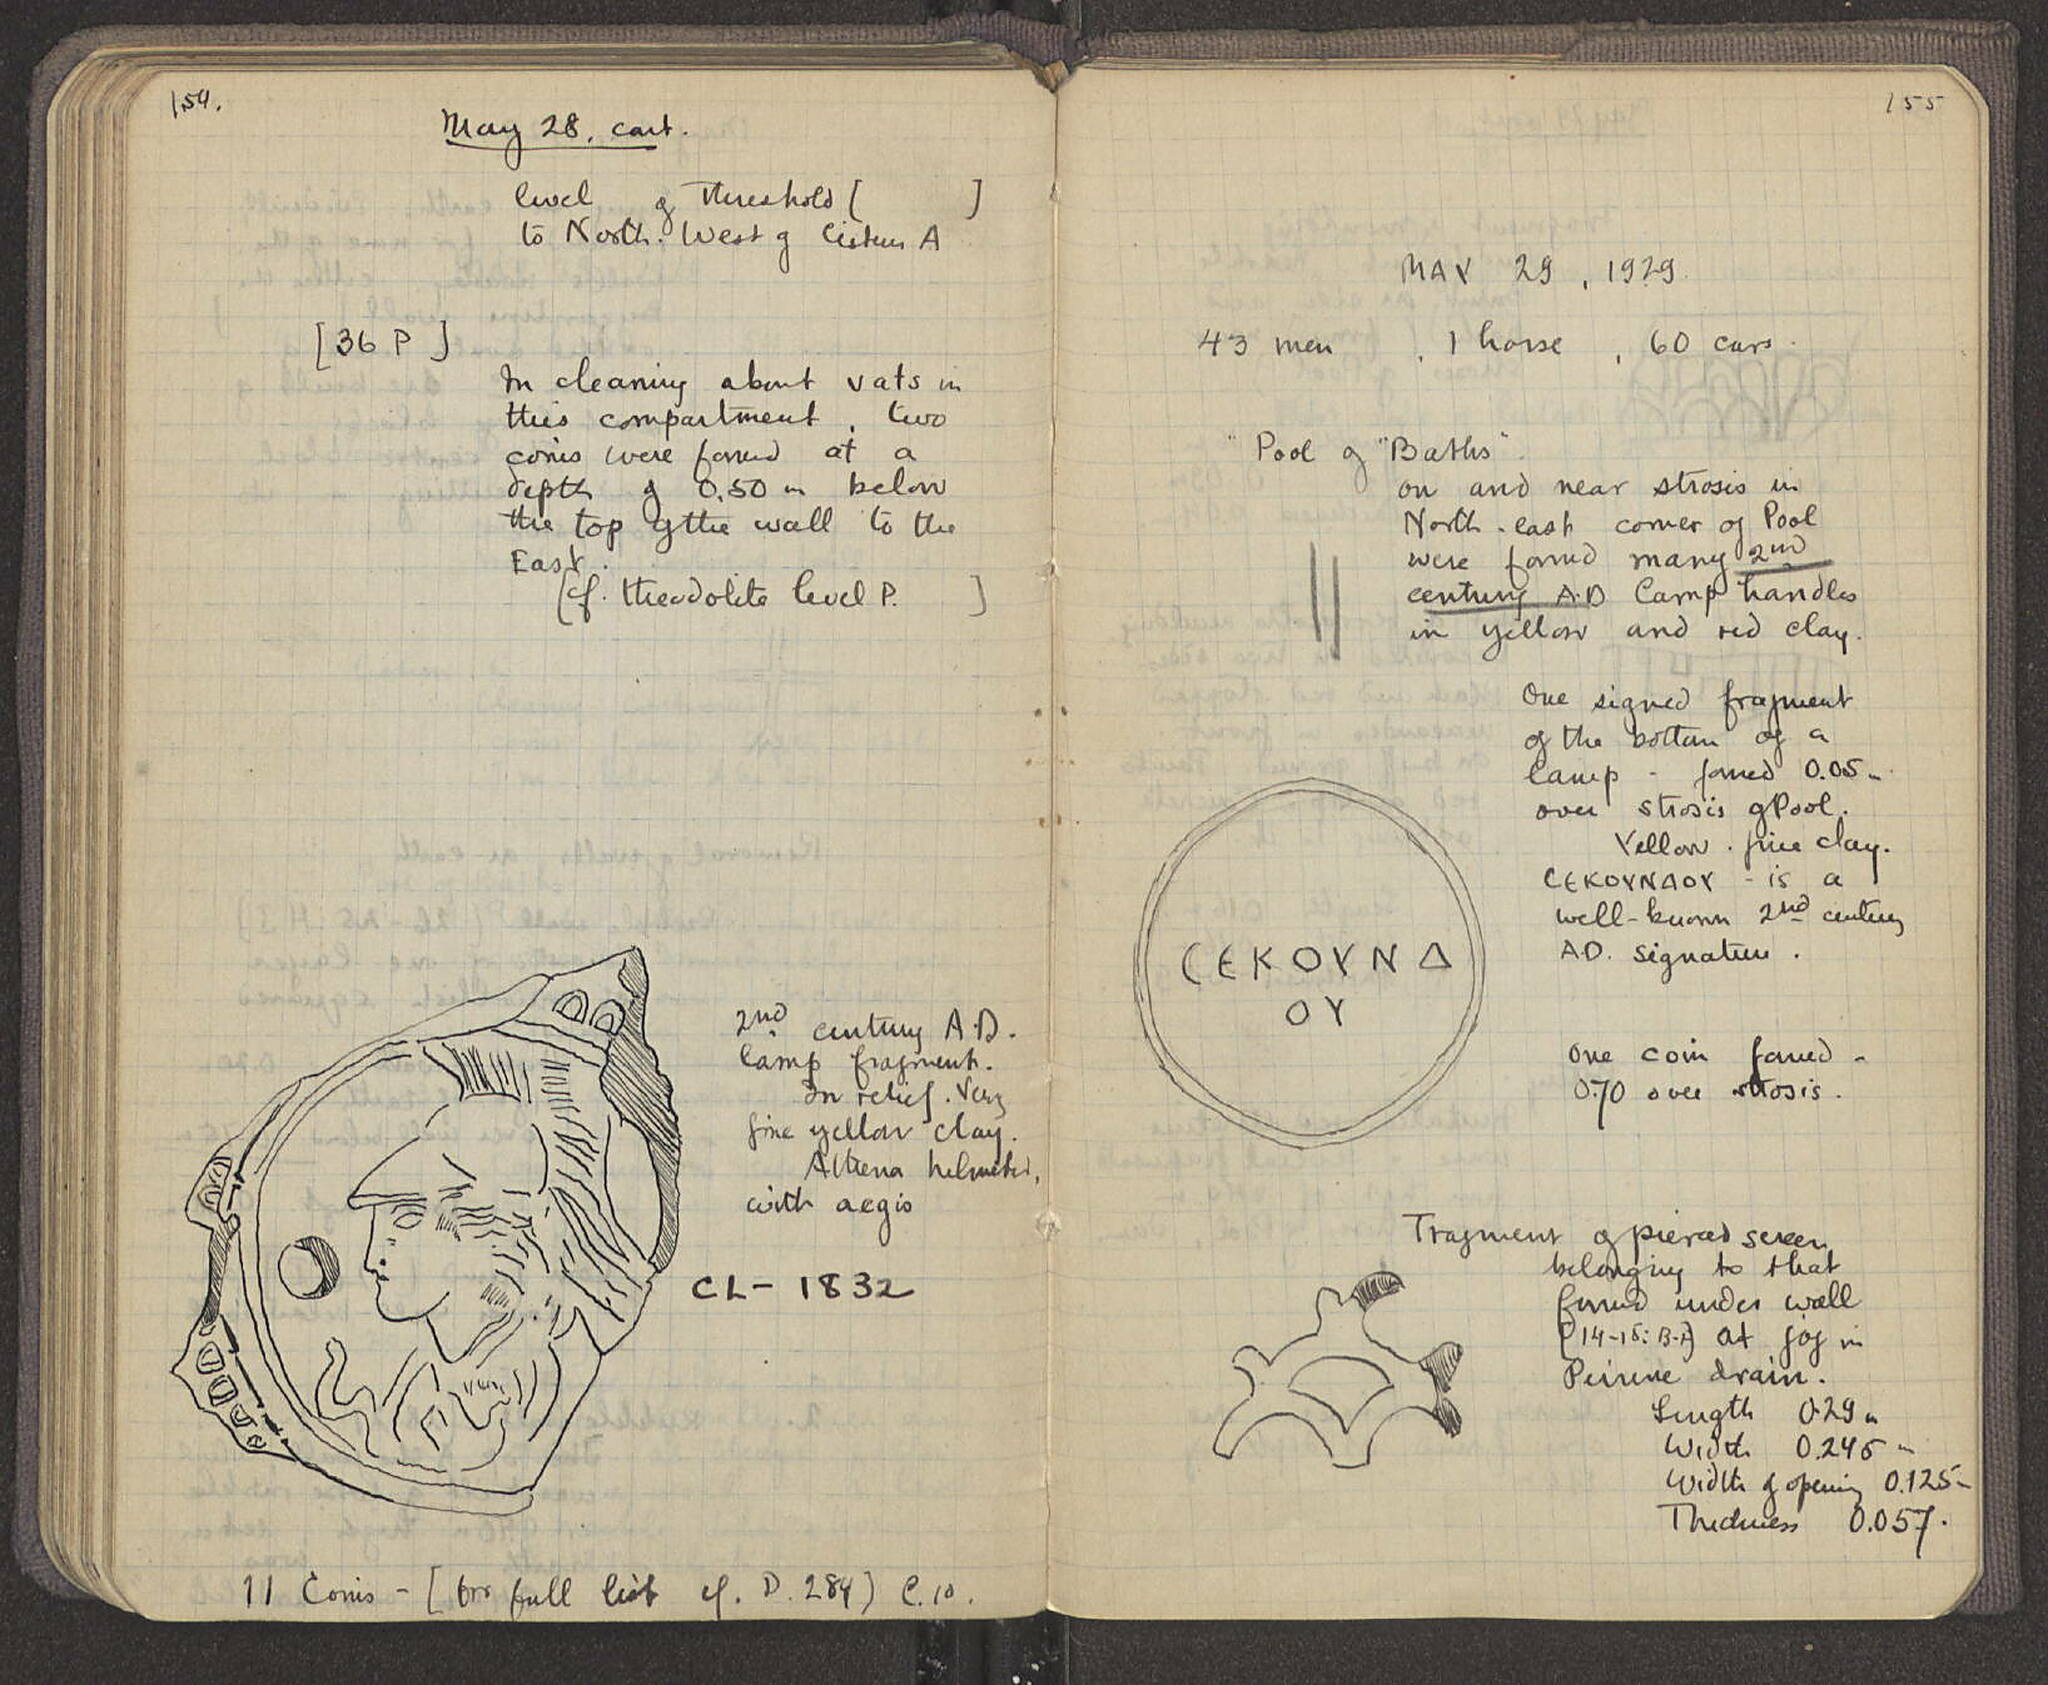 154.
May 28, cont.
level of threshold [ ]
to North-West of Cistern A
[36 P]
In cleaning about vats in
this compartment, two
coins were found at a
depth of 0.50 m below
the top of the wall to the
East.
[cf. theodolite level P. ]
2nd century A.D.
lamp fragment.
In relief. Very
fine yellow clay.
Athena helmeted,
with aegis
CL - 1832
11 Coins - [for full list cf. D. 284] C.10.
155
MAY 29, 1929.
43 men, 1 horse, 60 cars.
"Pool of "Baths".
on and near strosis in
North-east corner of Pool
were found many 2nd
century A.D Lamp handles
in yellow and red clay.
One signed fragment
of the bottom of a
lamp - found 0.05 m.
over strosis of Pool.
Yellow fine clay.
CЄΚΟΥΝΔΟΥ - is a
well-known 2nd century
A.D. signature.
CЄΚΟΥΝΔ
ΟΥ
One coin found -
0.70 over strosis.
Fragment of pierced screen
belonging to that
found under wall
(14-15: B-A) at jog in
Peirene drain.
Length 0.29 m
Width 0.245 m
Width of opening 0.125 m
Thickness 0.057.